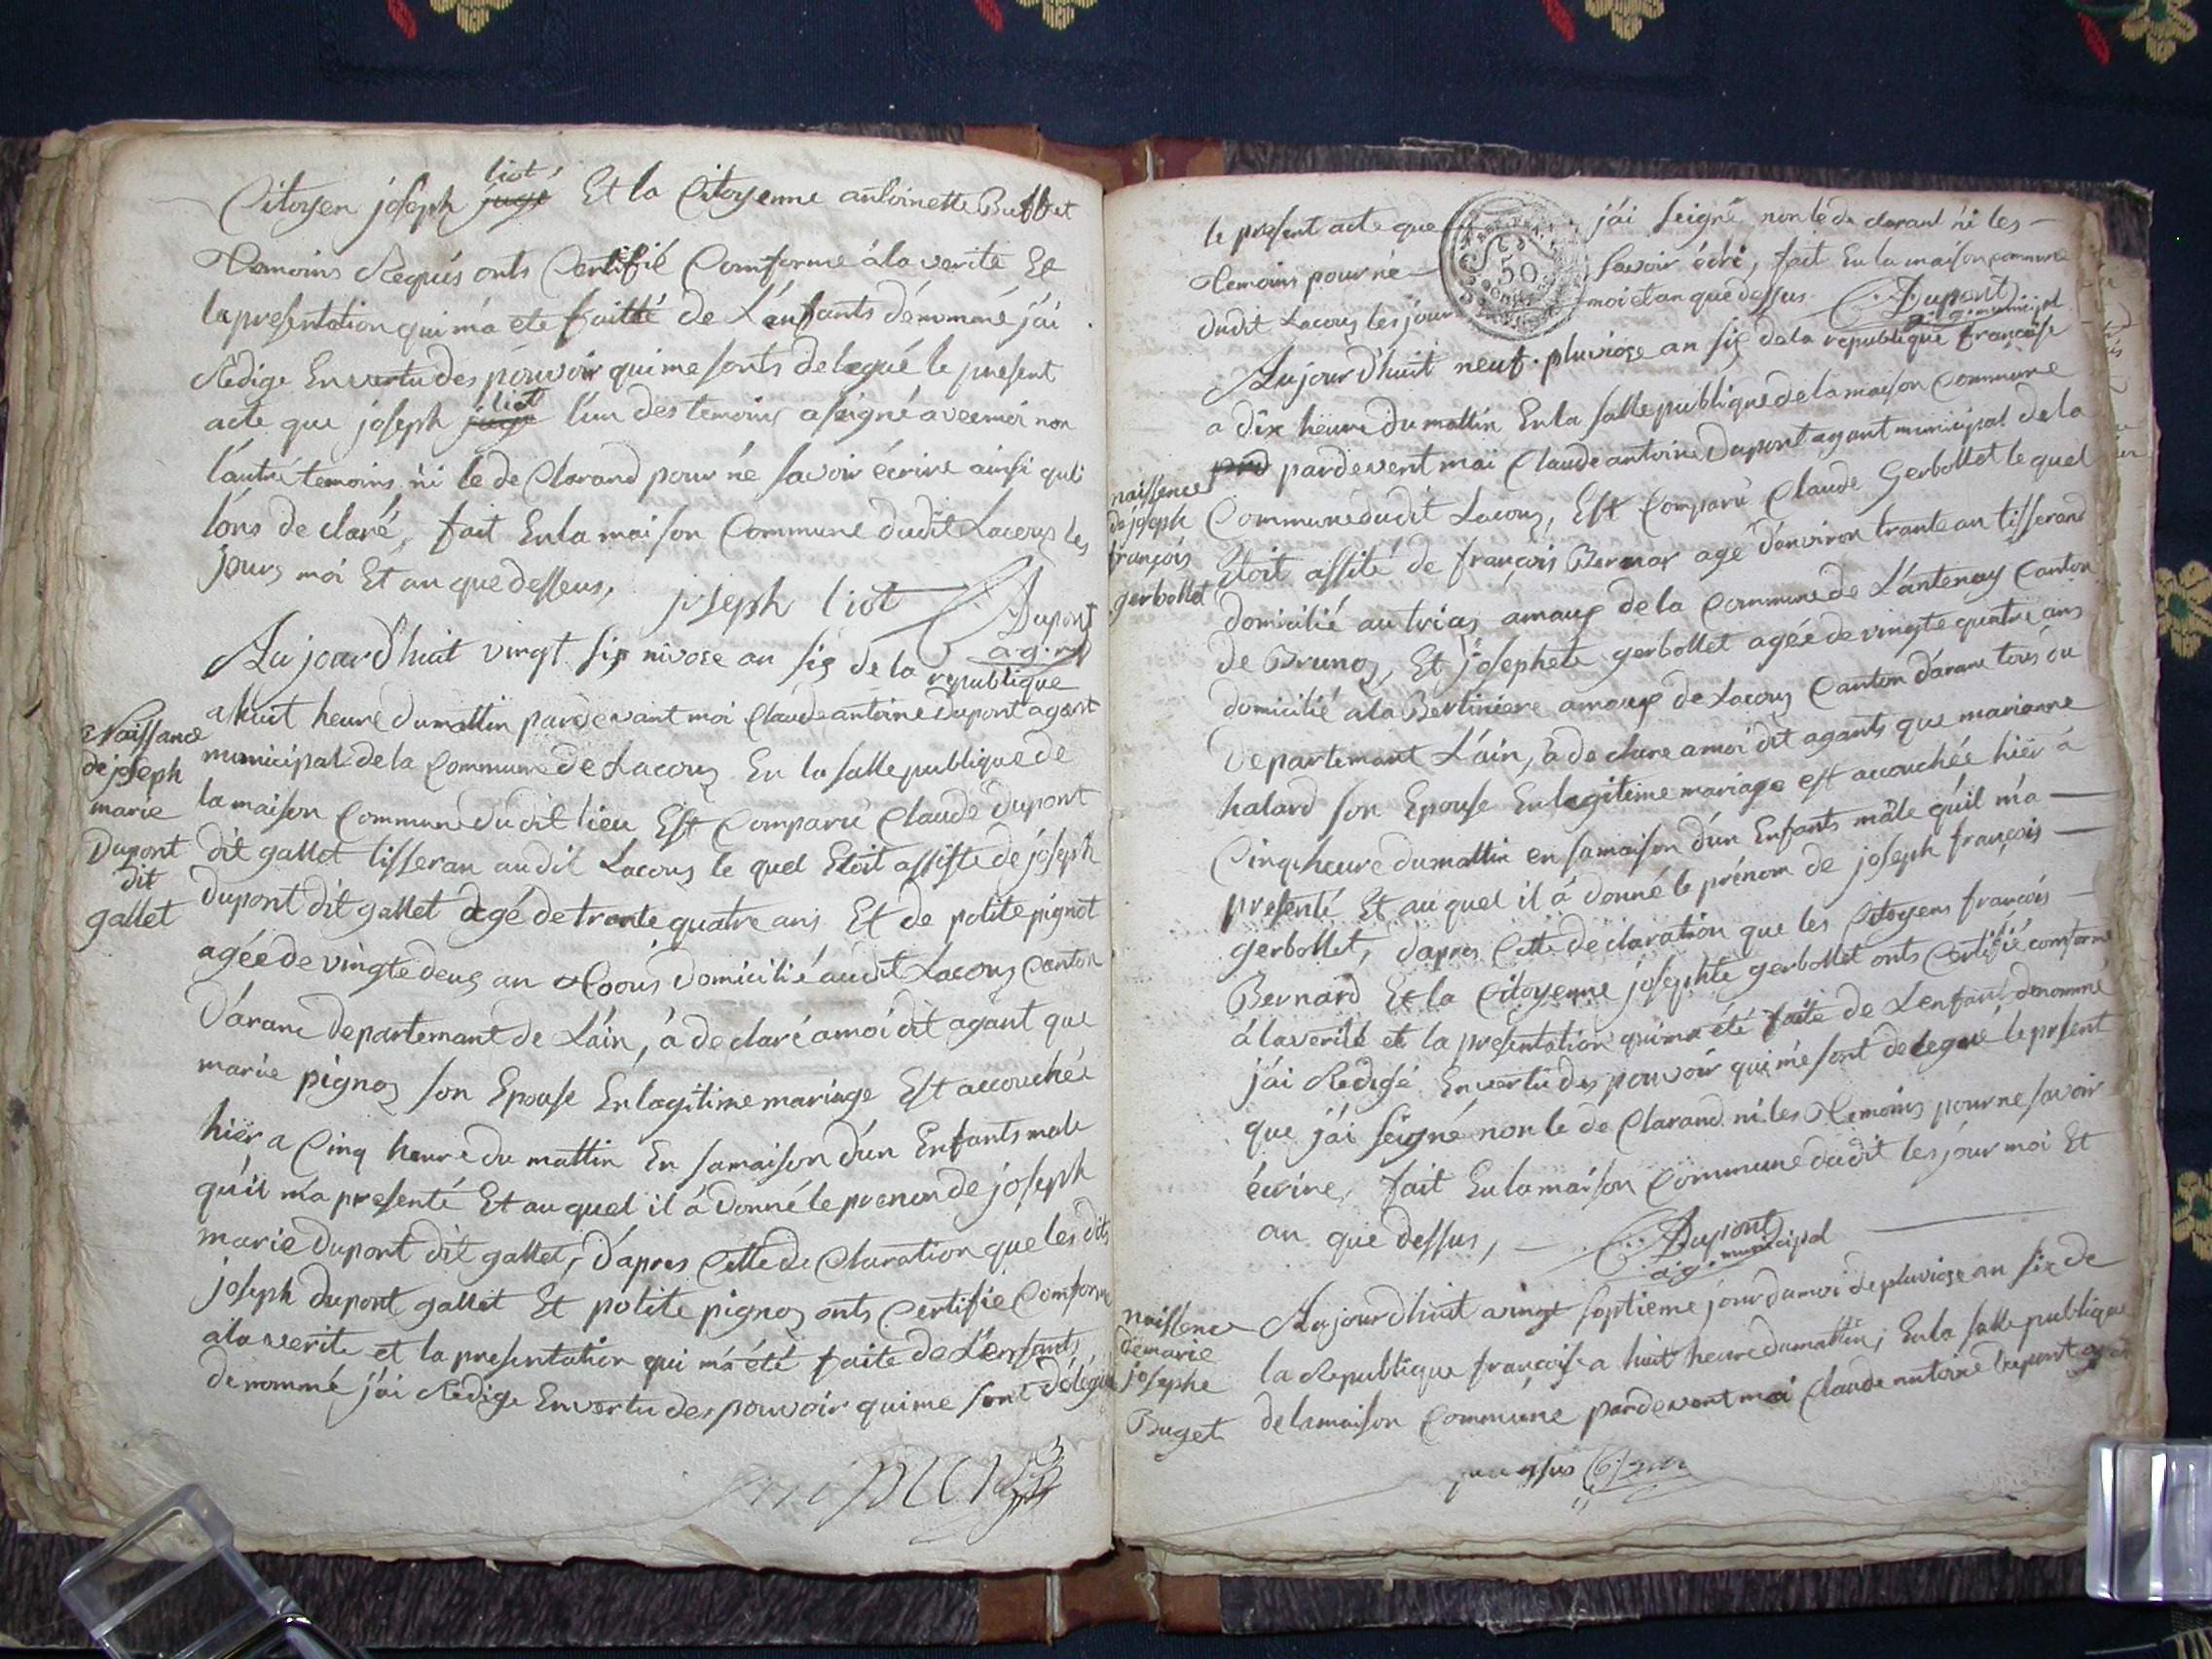 Citoyen joseph juge liot Et la Citoyenne antoinette Buttet
Temoins Requis onts Certifié Comforme à la verité Et
la presentation qui m'a ete faitté de L'enfants dénommé j'ai
Redige En vertu des pouvoir qui me sonts delegué le present
acte que joseph juge liot l'un des temoins a seigné avec moi non
l'autre temoins ni le de Clarand pour né savoir écrire ainsi quli
lons de claré, fait En la maison Commune dudit Lacoux les
jours moi Et an que dessus,
joseph liot
Dupont
ag. m
Naissance
de joseph
marie
Dupont
dit
gallet
Aujourd'huit vingt six nivose an six de la republique
a huit heure du mattin pardevant moi Claude antoine Dupont agant
municipal de la Commune de Lacoux En la salle publique de
la maison Commune dudit lieu Est Comparu Claude Dupont
dit gallet tisseran audit Lacoux le quel Etoit assiste de joseph
dupont dit gallet agé de trante quatre ans Et de polite pignot
agée de vingte deux an Toous Domicilié audit Lacoux Canton
D'aranc departemant de L'ain, à de claré a moi dit agant que
marie pignoz son Epouse En lagitime mariage Est accouchée
hiër a Cinq heure du mattin En sa maison d'un Enfants male
qu'il m'a presenté Et au quel il á Donné le prenom de joseph
marie Dupont dit gallet, d'apres Cette de Claration que les dits
joseph dupont gallet Et polite pignoz onts Certifié Comforme
a la verite et la presentation qui m'a été faite de L'enfants
denommé j'ai Redige En vertu des pouvoir qui me sont délégué
le present acte que j'ai seigné non le de clarant ni les
Temoins pour né savoir écri, fait En la maison commune
dudit Lacoux les jour moi et an que dessus Dupont
ag. municipal
50
naissence
de joseph
françois
gerbollet
Aujourd'huit neuf pluviose an six de la republique francaise
a dix heure du mattin En la salle publique de la maison Commune
prd pardevent moi Claude antoine Dupont agant municipal de la
Commune dudit Lacoux, Est Comparu Claude Gerbollet le quel
Etoit assité de françois Bernar agé d'anviron trante an tisserand
domicilié au triaz amaux de la Commune de L'antenay Canton
de Brunoz, Et josephete gerbollet agée de vingte quatre ans
domicilié a la Bertiniere amaux de Lacoux Canton d'aranc tous du
Departemant L'ain, à de clare a moi dit agants que marianne
halard son Epouse En legitime mariage est accouchée hiër à
Cinq heure du mattin en sa maison d'un Enfants mâle qu'il m'a
presenté Et au quel il á donné le prénom de joseph françois
gerbollet, d'apres Cette de claration que les Citoyens françois
Bernard Et la Citoyenne joséphte gerbollet onts Certifié comforme
à la verité et la presentation qui m'a été faite de L'enfant dénommé
j'ai Redigé En vertu des pouvoir qui me sont delegué le prsent
que j'ai seigné non le de Clarand ni les Temoins pour ne savoir
écrire, fait En la maison Commune dudit les jour moi Et
an que dessus,
Dupont
ag. municipal
naissence
de marie
josephe
Buget
Aujourd'huit a vingt septieme jour du moi de pluviose an six de
la Republique françoise a huit heure du mattin, En la salle publique
de la maison Commune pardevant moi Claude antoine Dupont agant